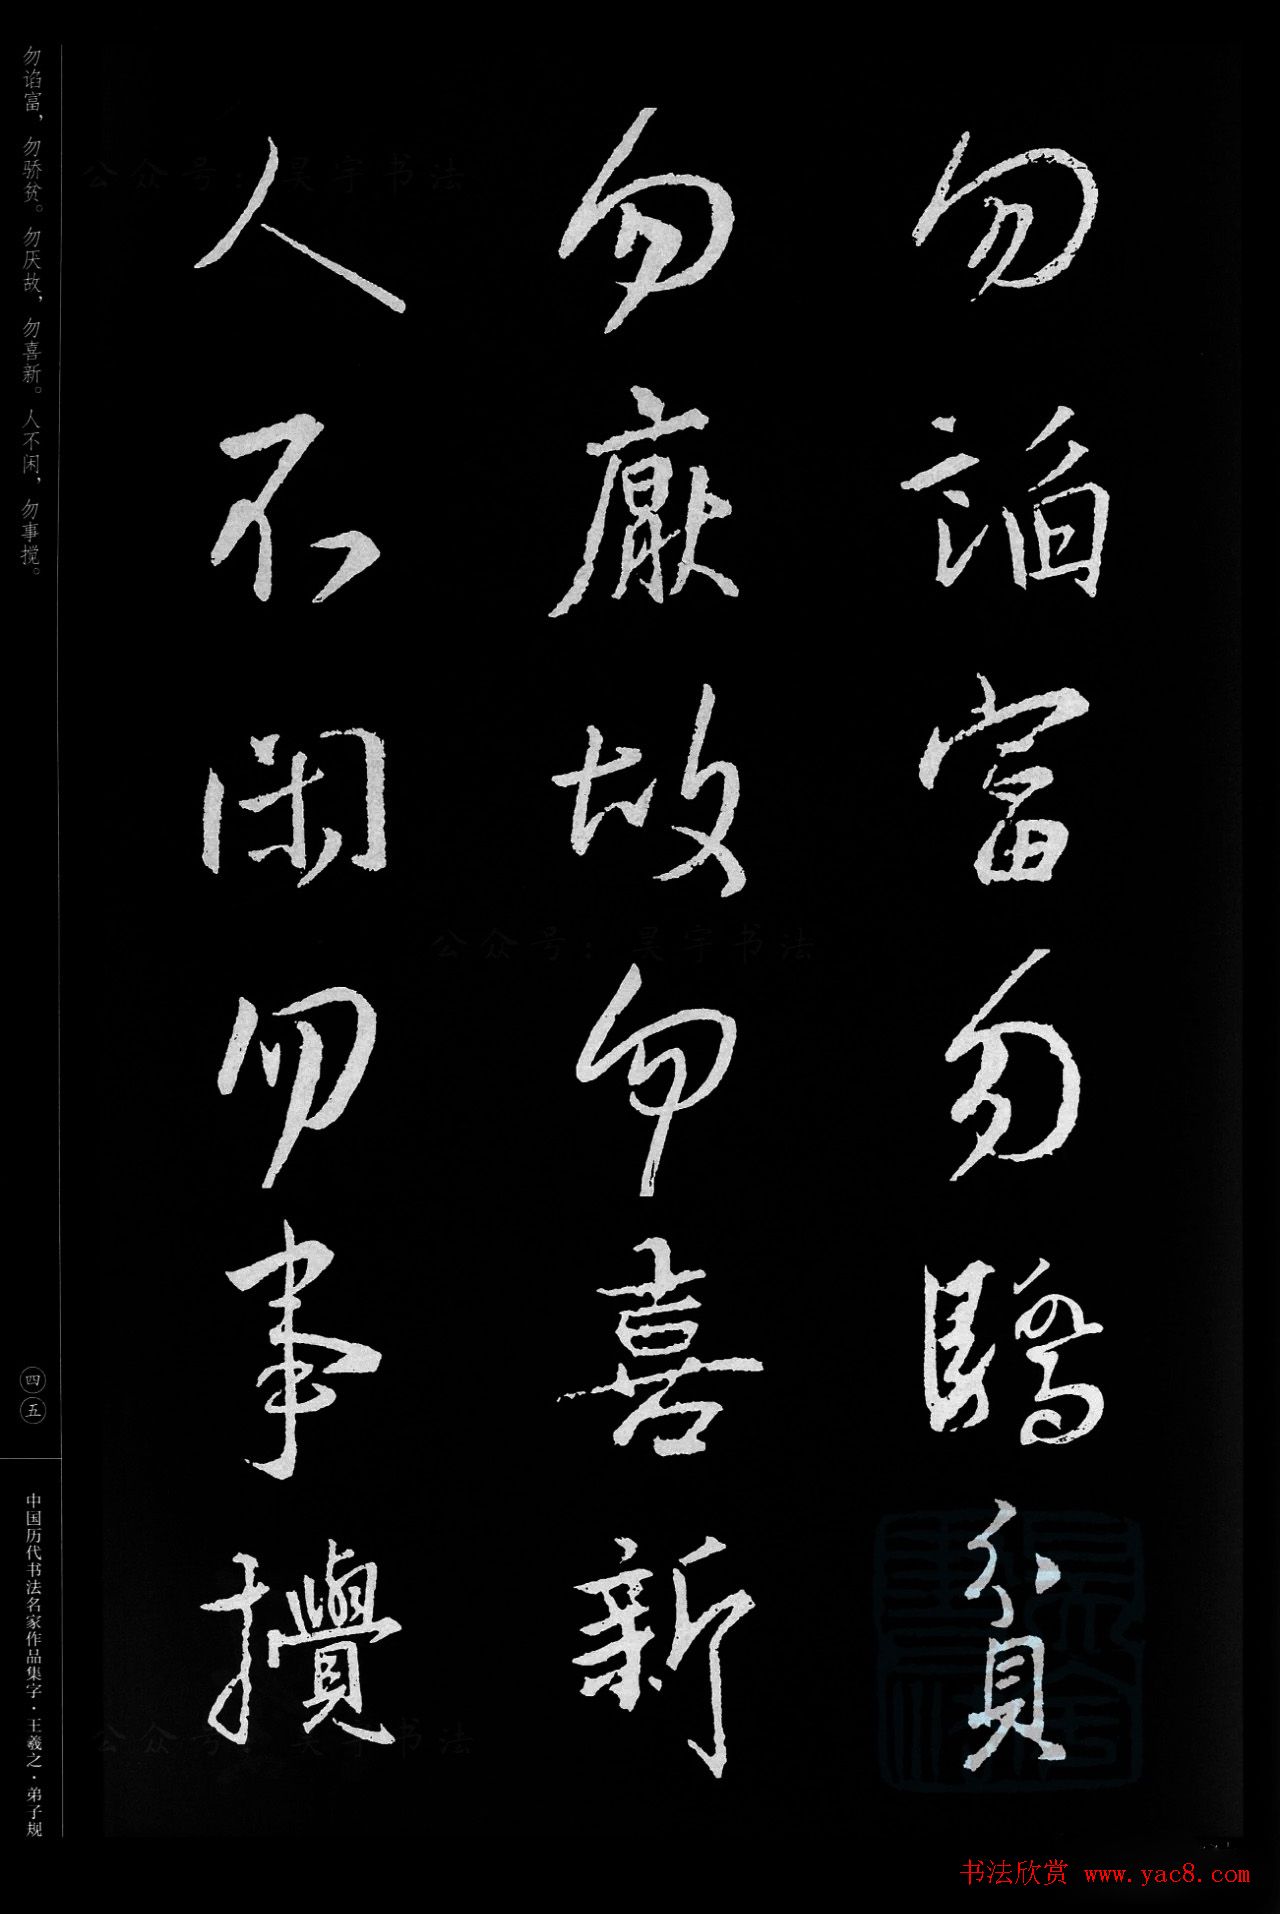 勿諂富勿驕貧
勿厭故勿喜新
人不閑勿事攪
勿谄富，勿骄贫。勿厌故，勿喜新。人不闲，勿事搅。
四五
中国历代书法名家作品集字·王羲之·弟子规
公众号：昊宇书法
公众号：昊宇书法
公众号：昊宇书法
书法欣赏 www.yac8.com